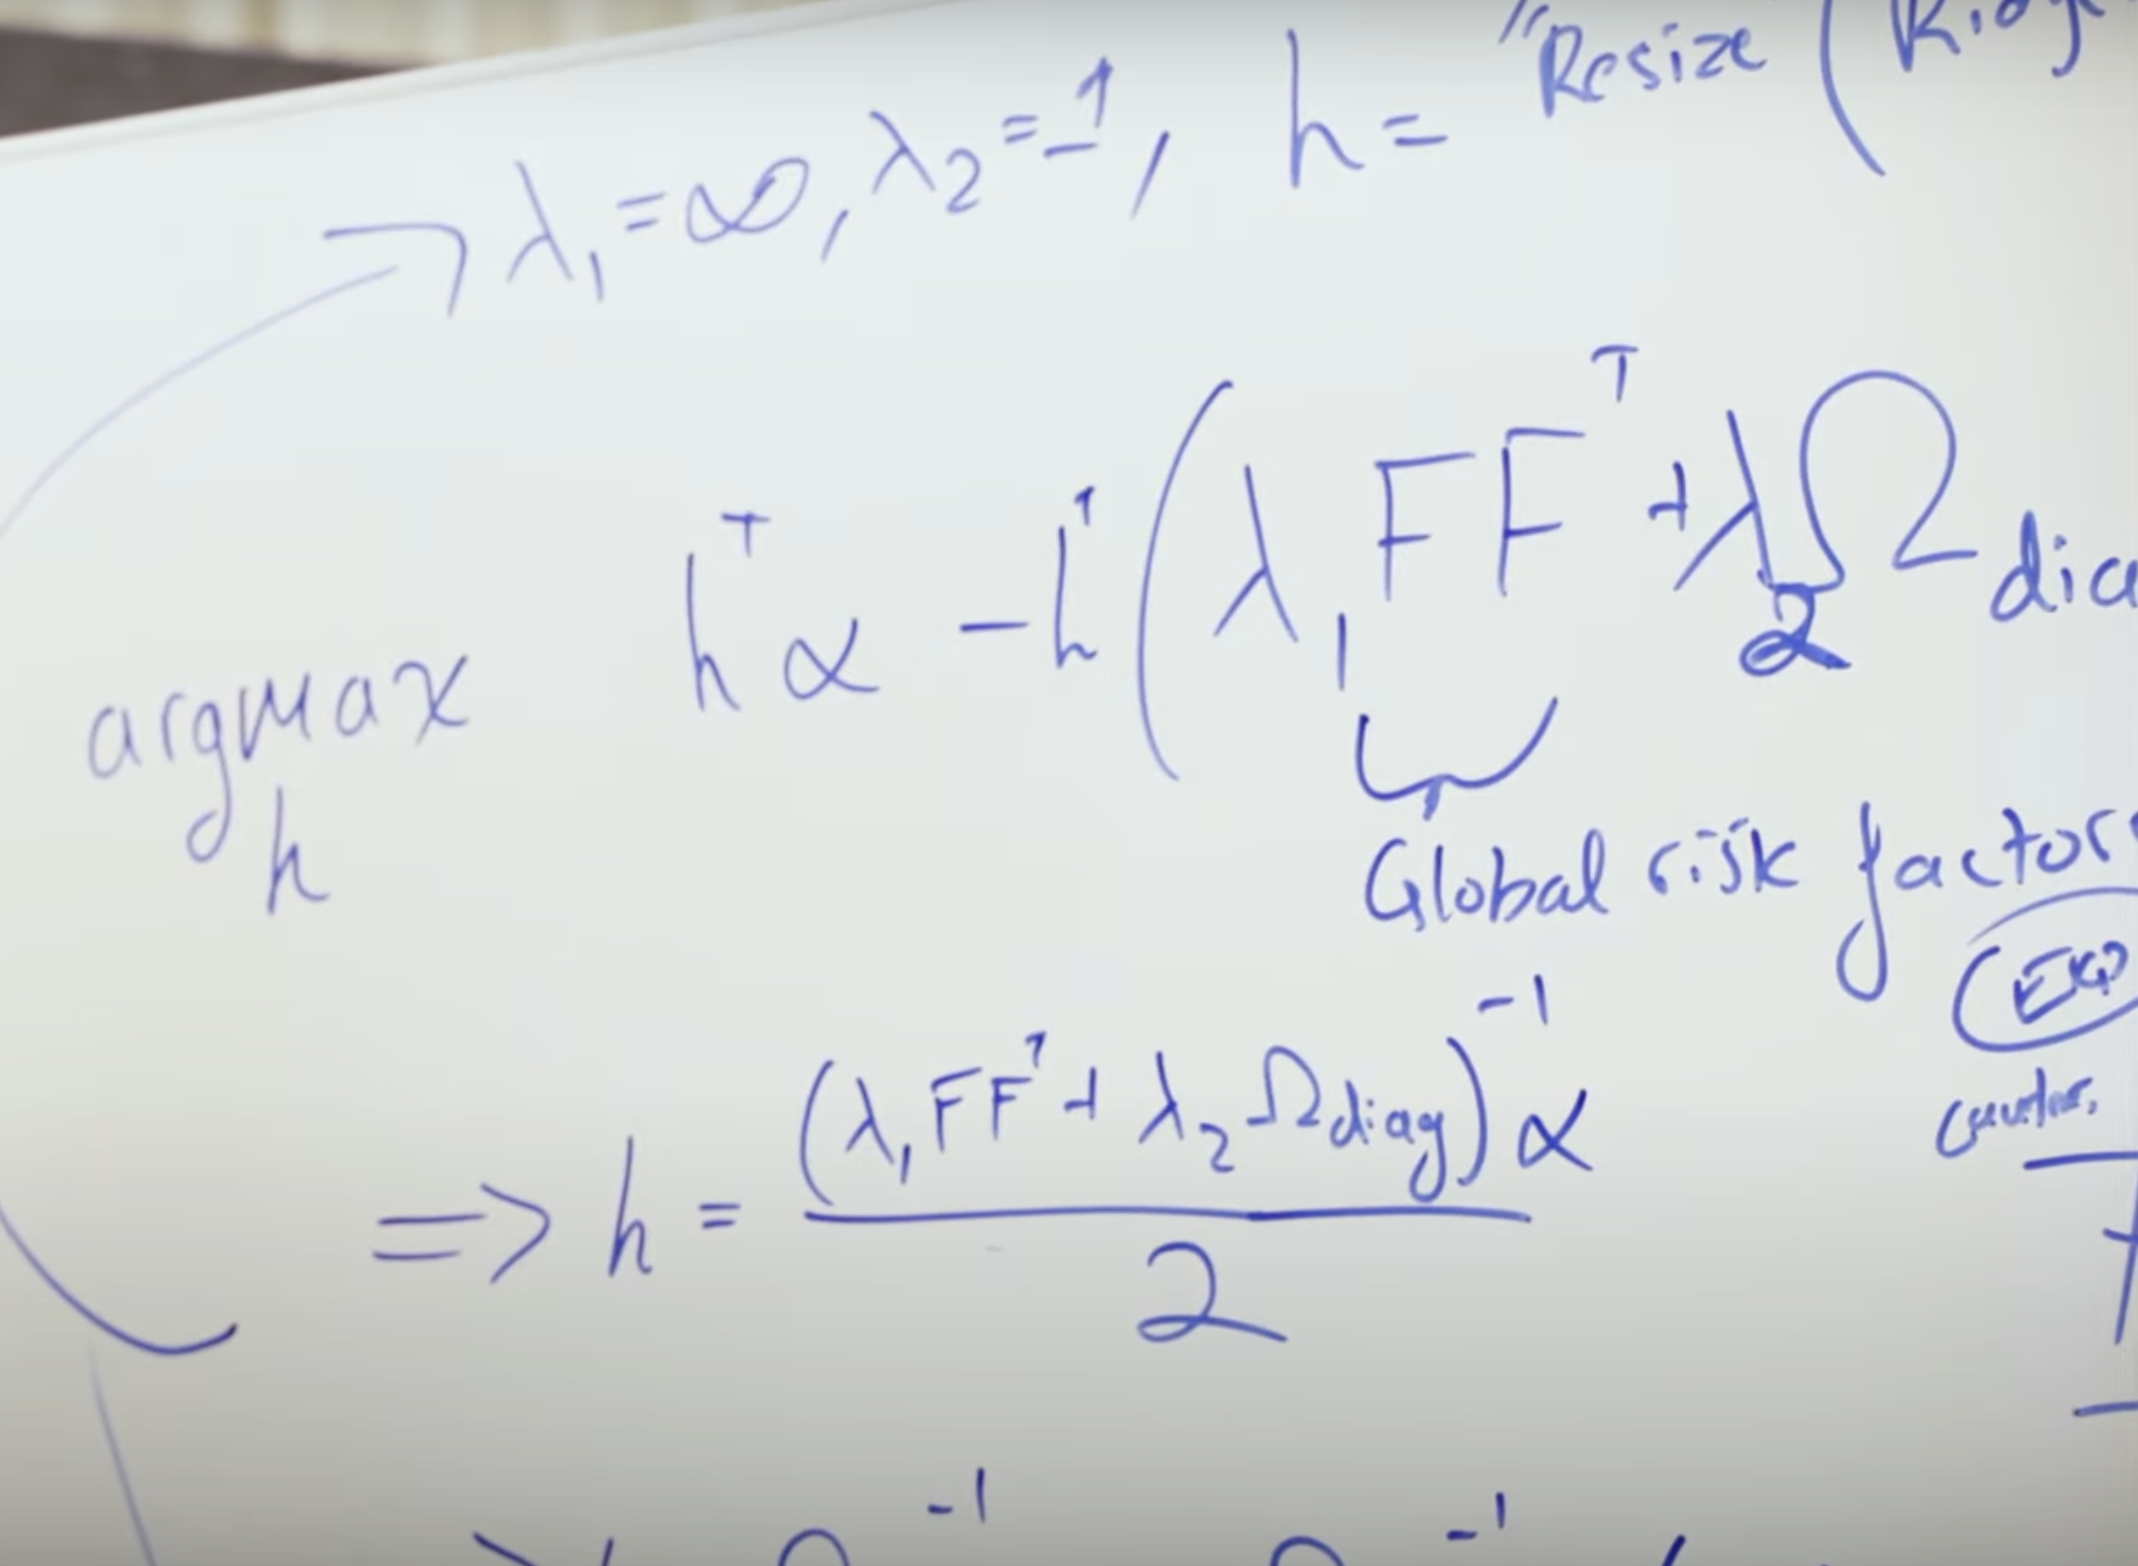 → λ₁ = ∞, λ₂ = 1, h = "Resize (Ridg
argmax h hᵀα − hᵀ(λ₁FFᵀ + λ₂Ω dia
Global risk factors
EQ
⇒ h = (λ₁FFᵀ + λ₂Ω diag)⁻¹α / 2